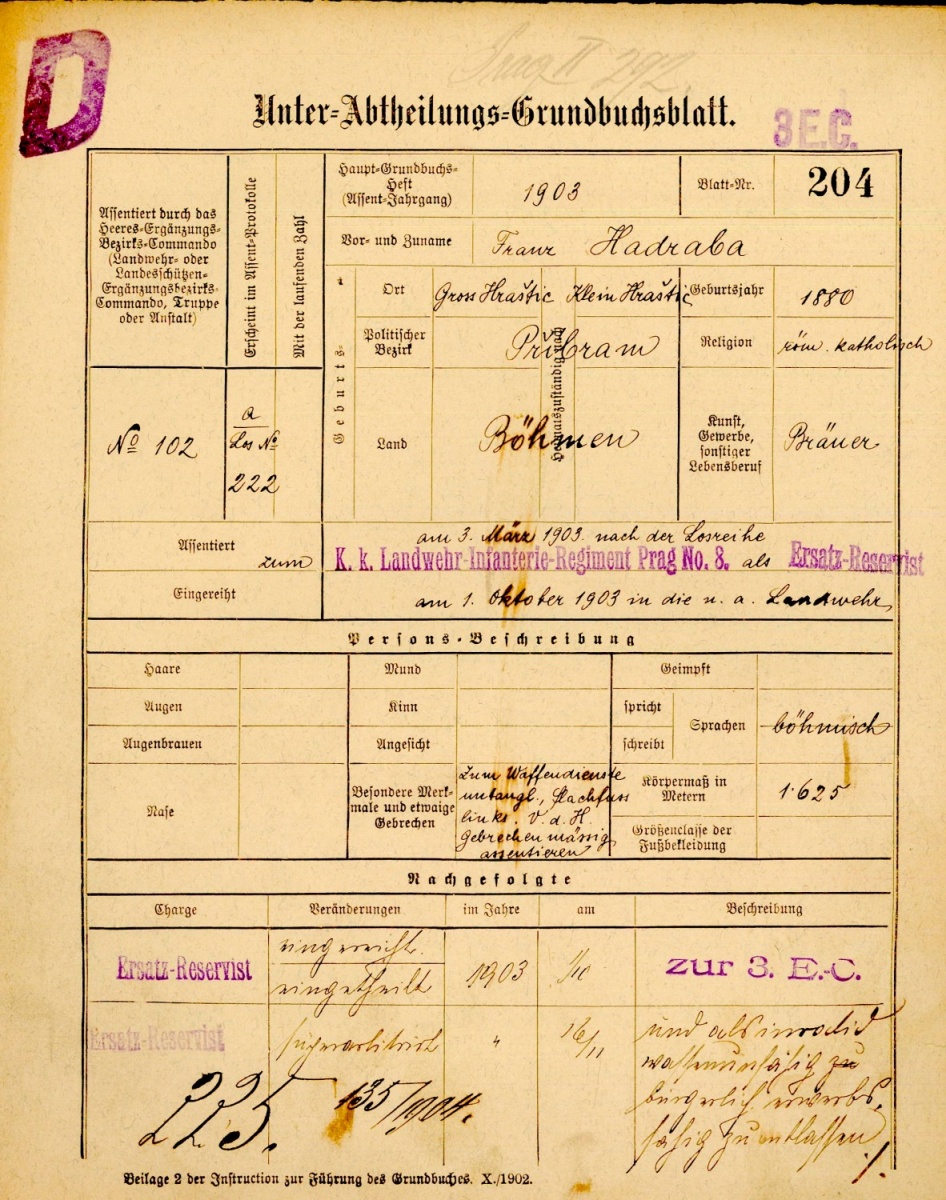 D
Prag II 292.
Unter-Abtheilungs-Grundbuchsblatt.
3 E.C.
Assentiert durch das
Heeres-Ergänzungs-
Bezirks-Commando
(Landwehr- oder
Landesschützen-
Ergänzungsbezirks-
Commando, Truppe
oder Anstalt)
Erscheint im Assent-Protokolle
Mit der laufenden Zahl
Haupt-Grundbuchs-
Heft
(Assent-Jahrgang)
1903
Blatt-Nr.
204
Vor- und Zuname
Franz Hadraba
Geburts-
Ort
Gross Hraštic Klein Hraštic
Geburtsjahr
1880
Politischer
Bezirk
Příbram
Religion
röm. katholisch
Land
Böhmen
Kunst,
Gewerbe,
sonstiger
Lebensberuf
Bräuer
No 102
a
Los No
222
Assentiert
am 3. März 1903. nach der Losreihe
zum K. k. Landwehr-Infanterie-Regiment Prag No. 8. als Ersatz-Reservist
Eingereiht
am 1. Oktober 1903 in die n. a. Landwehr
Persons-Beschreibung
Haare
Mund
Geimpft
Augen
Kinn
spricht
Sprachen
böhmisch
Augenbrauen
Angesicht
schreibt
Nase
Besondere Merk-
male und etwaige
Gebrechen
Zum Waffendienste
untaugl., Flachfuss
links. V. d. H.
Gebrechen mässig
assentieren
Körpermaß in
Metern
1·625
Größenclasse der
Fußbekleidung
Nachgefolgte
Charge
Veränderungen
im Jahre
am
Beschreibung
Ersatz-Reservist
eingereiht
eingetheilt
1903
1/10
zur 3. E.-C.
Ersatz-Reservist
superarbitriert
"
16/11
und als invalid
waffenunfähig zu
bürgerlich erwerbs-
fähig zu entlassen
./.
225.
135/1904.
Beilage 2 der Instruction zur Führung des Grundbuches. X./1902.